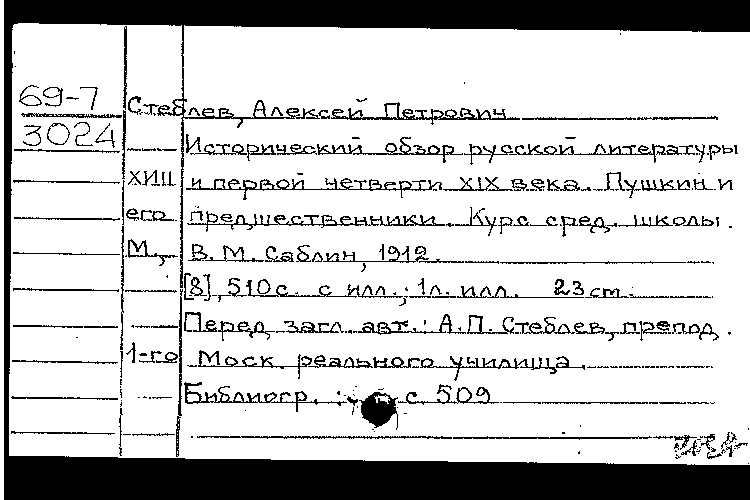 69-7
3024
Стеблев, Алексей Петрович
Исторический обзор русской литературы
XИII и первой четверти XIX века. Пушкин и
его предшественники. Курс сред. школы.
М., В. М. Саблин, 1912.
[8], 510 с. с илл.; 1 л. илл. 23 cm.
Перед загл. авт.: А.П. Стеблев, препод.
1-го Моск. реального училища.
Библиогр.: с. 509